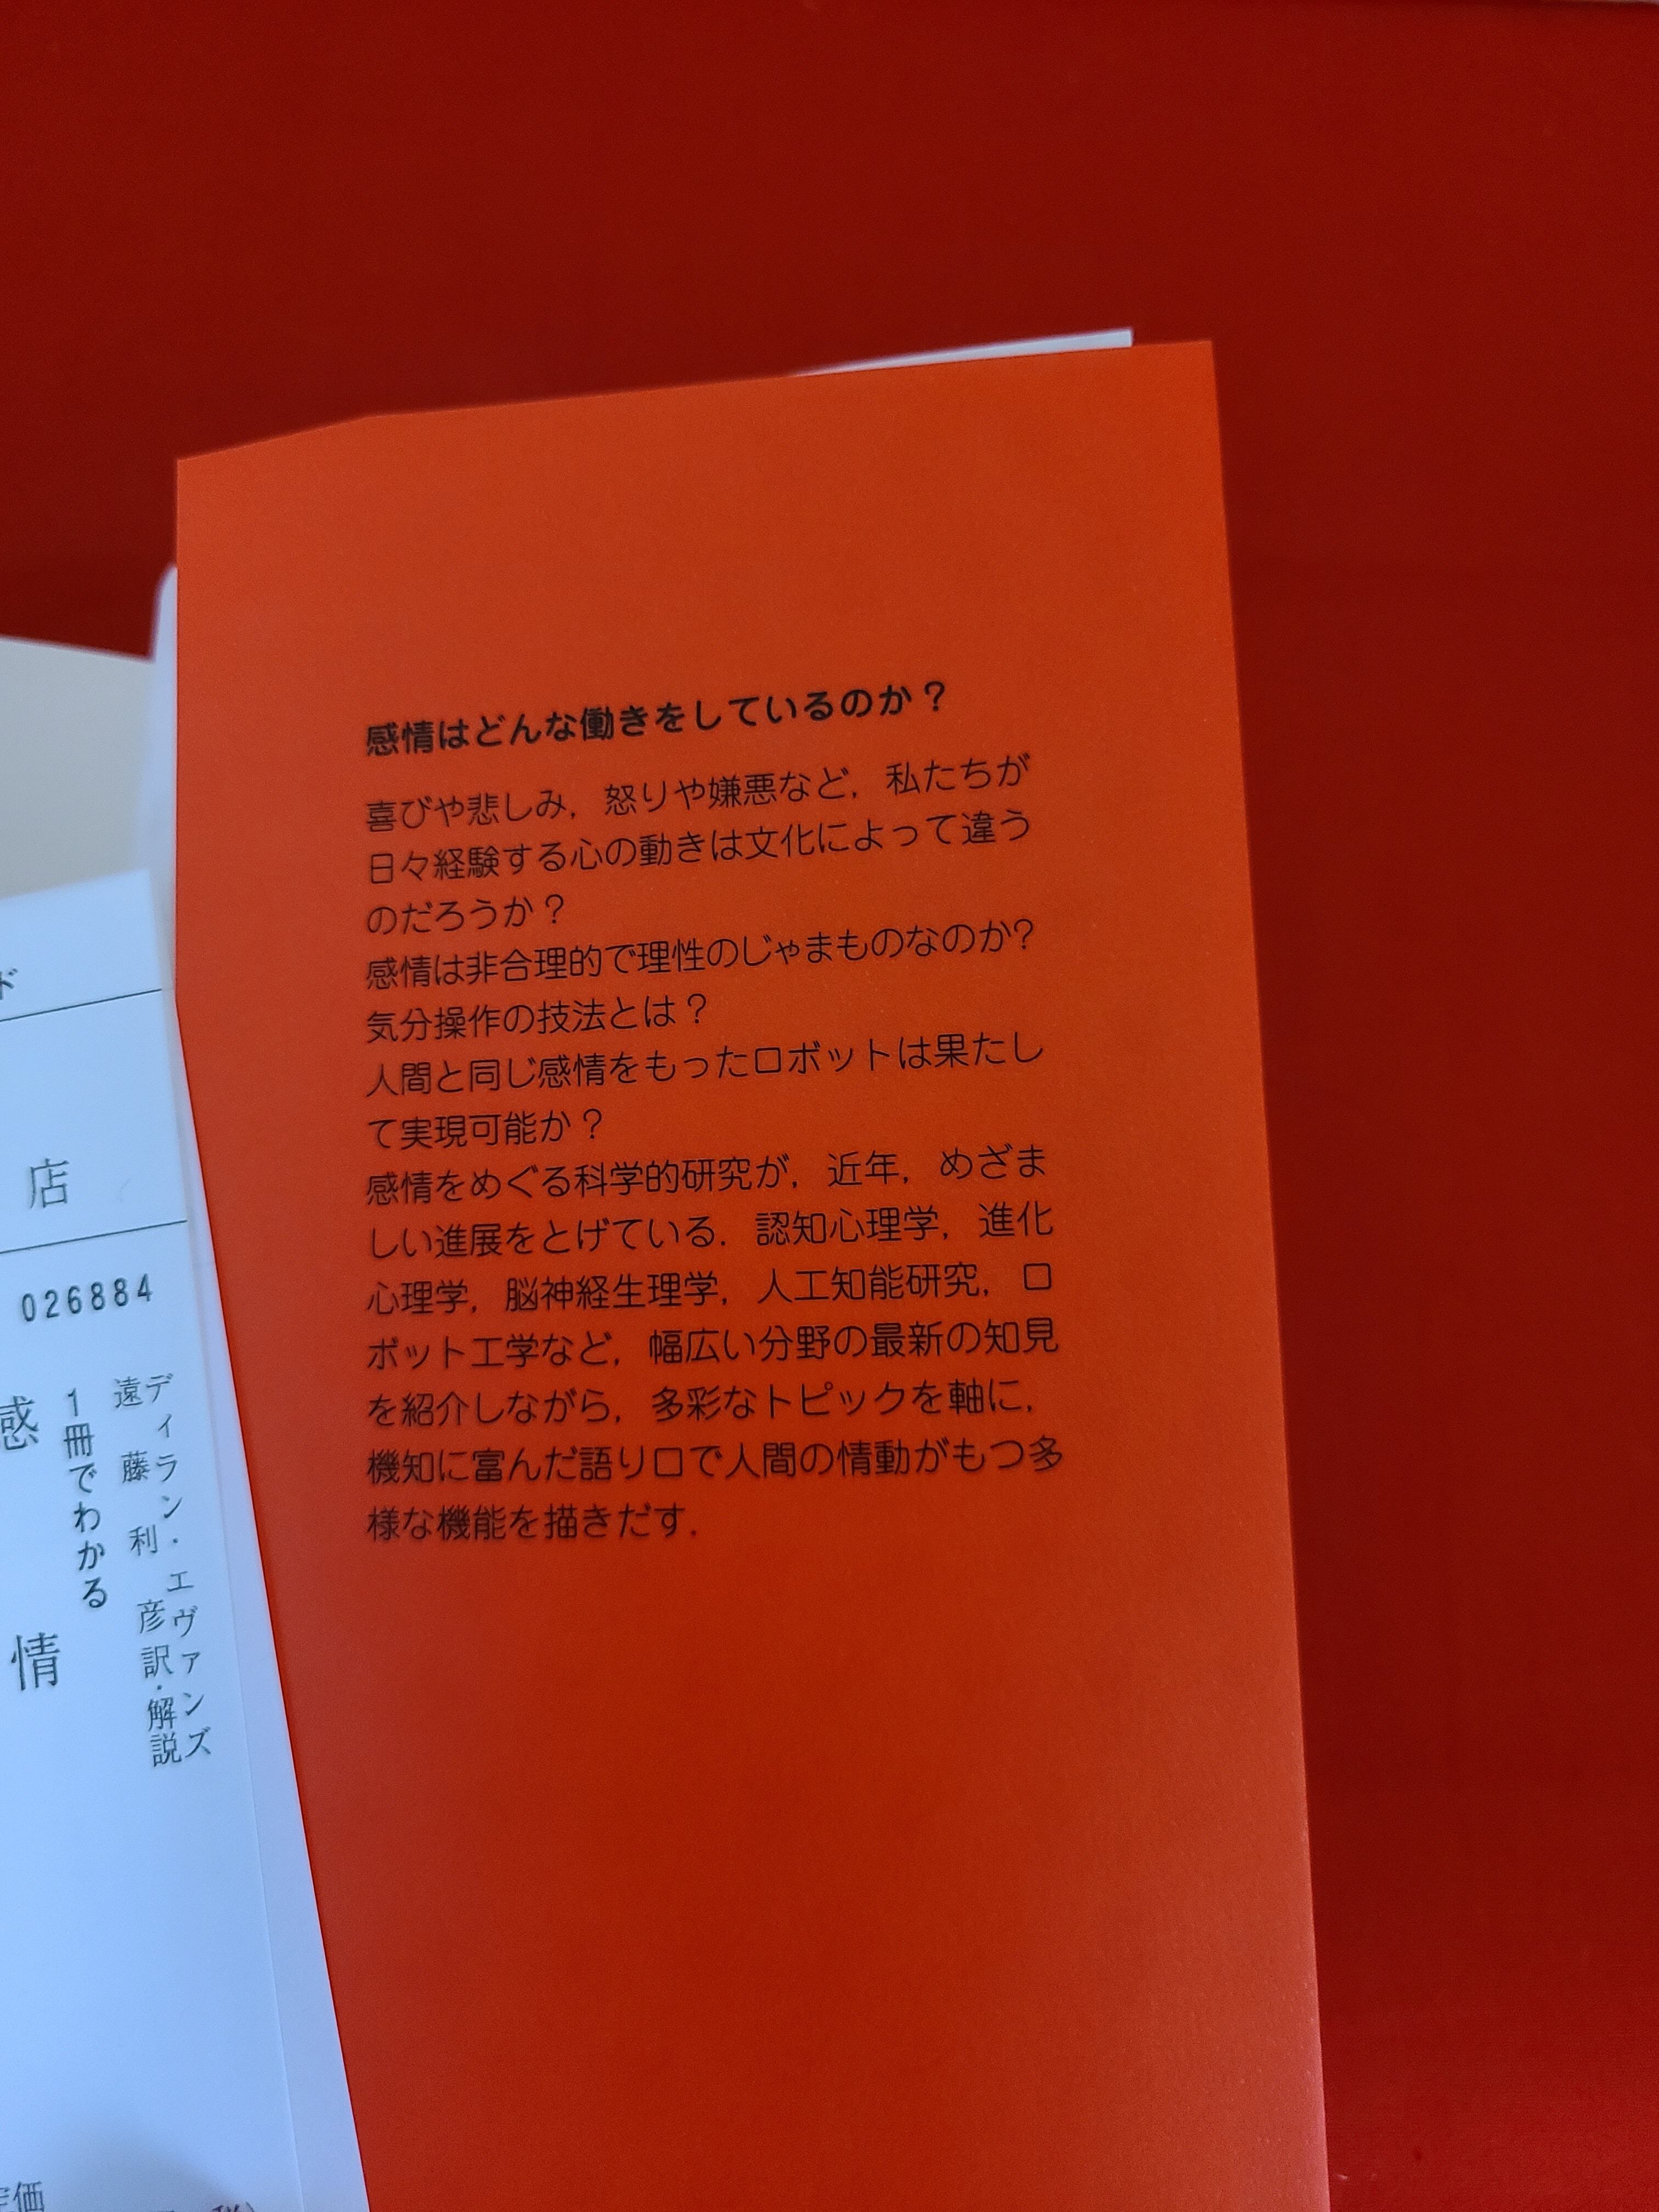 感情はどんな働きをしているのか？
喜びや悲しみ，怒りや嫌悪など，私たちが
日々経験する心の動きは文化によって違う
のだろうか？
感情は非合理的で理性のじゃまものなのか?
気分操作の技法とは？
人間と同じ感情をもったロボットは果たし
て実現可能か？
感情をめぐる科学的研究が，近年，めざま
しい進展をとげている．認知心理学，進化
心理学，脳神経生理学，人工知能研究，ロ
ボット工学など，幅広い分野の最新の知見
を紹介しながら，多彩なトピックを軸に，
機知に富んだ語り口で人間の情動がもつ多
様な機能を描きだす．
ド
店
026884
ディラン・エヴァンズ
遠藤利彦訳・解説
1冊でわかる
感情
定価
税）